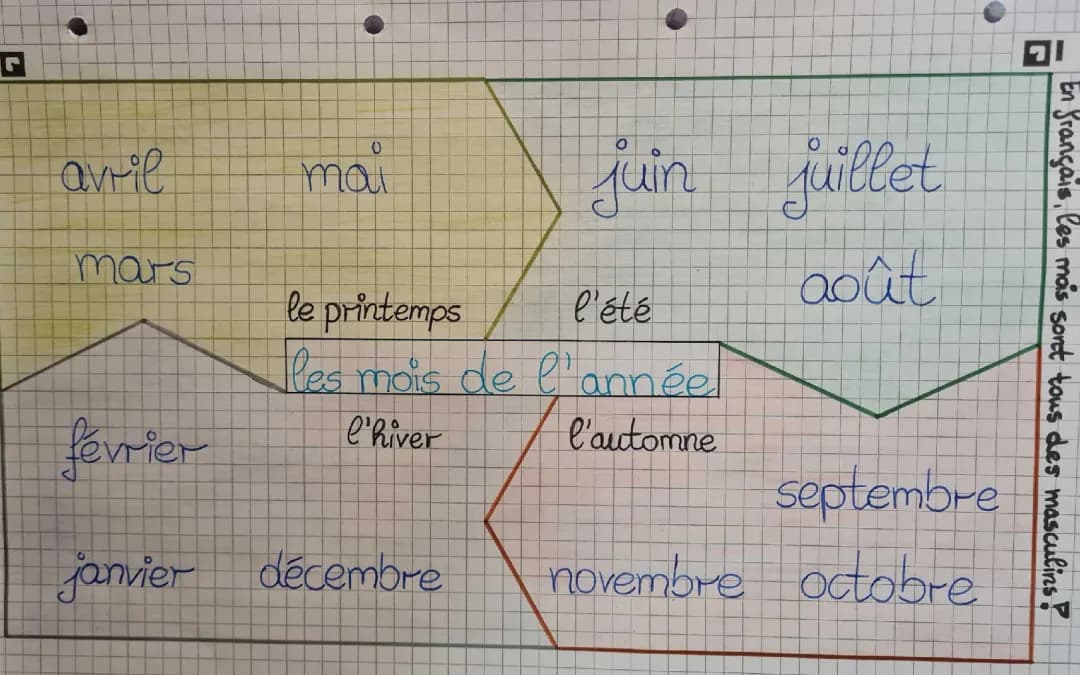 avril mai
mars
le printemps
juin juillet
août
l'été
les mois de l'année
février
l'hiver
janvier décembre
l'automne
septembre
novembre octobre
En français, les mois sont tous des masculins!